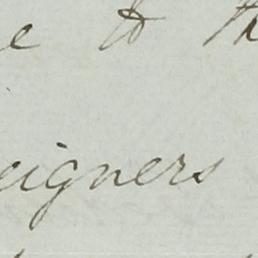 e to th
eigners